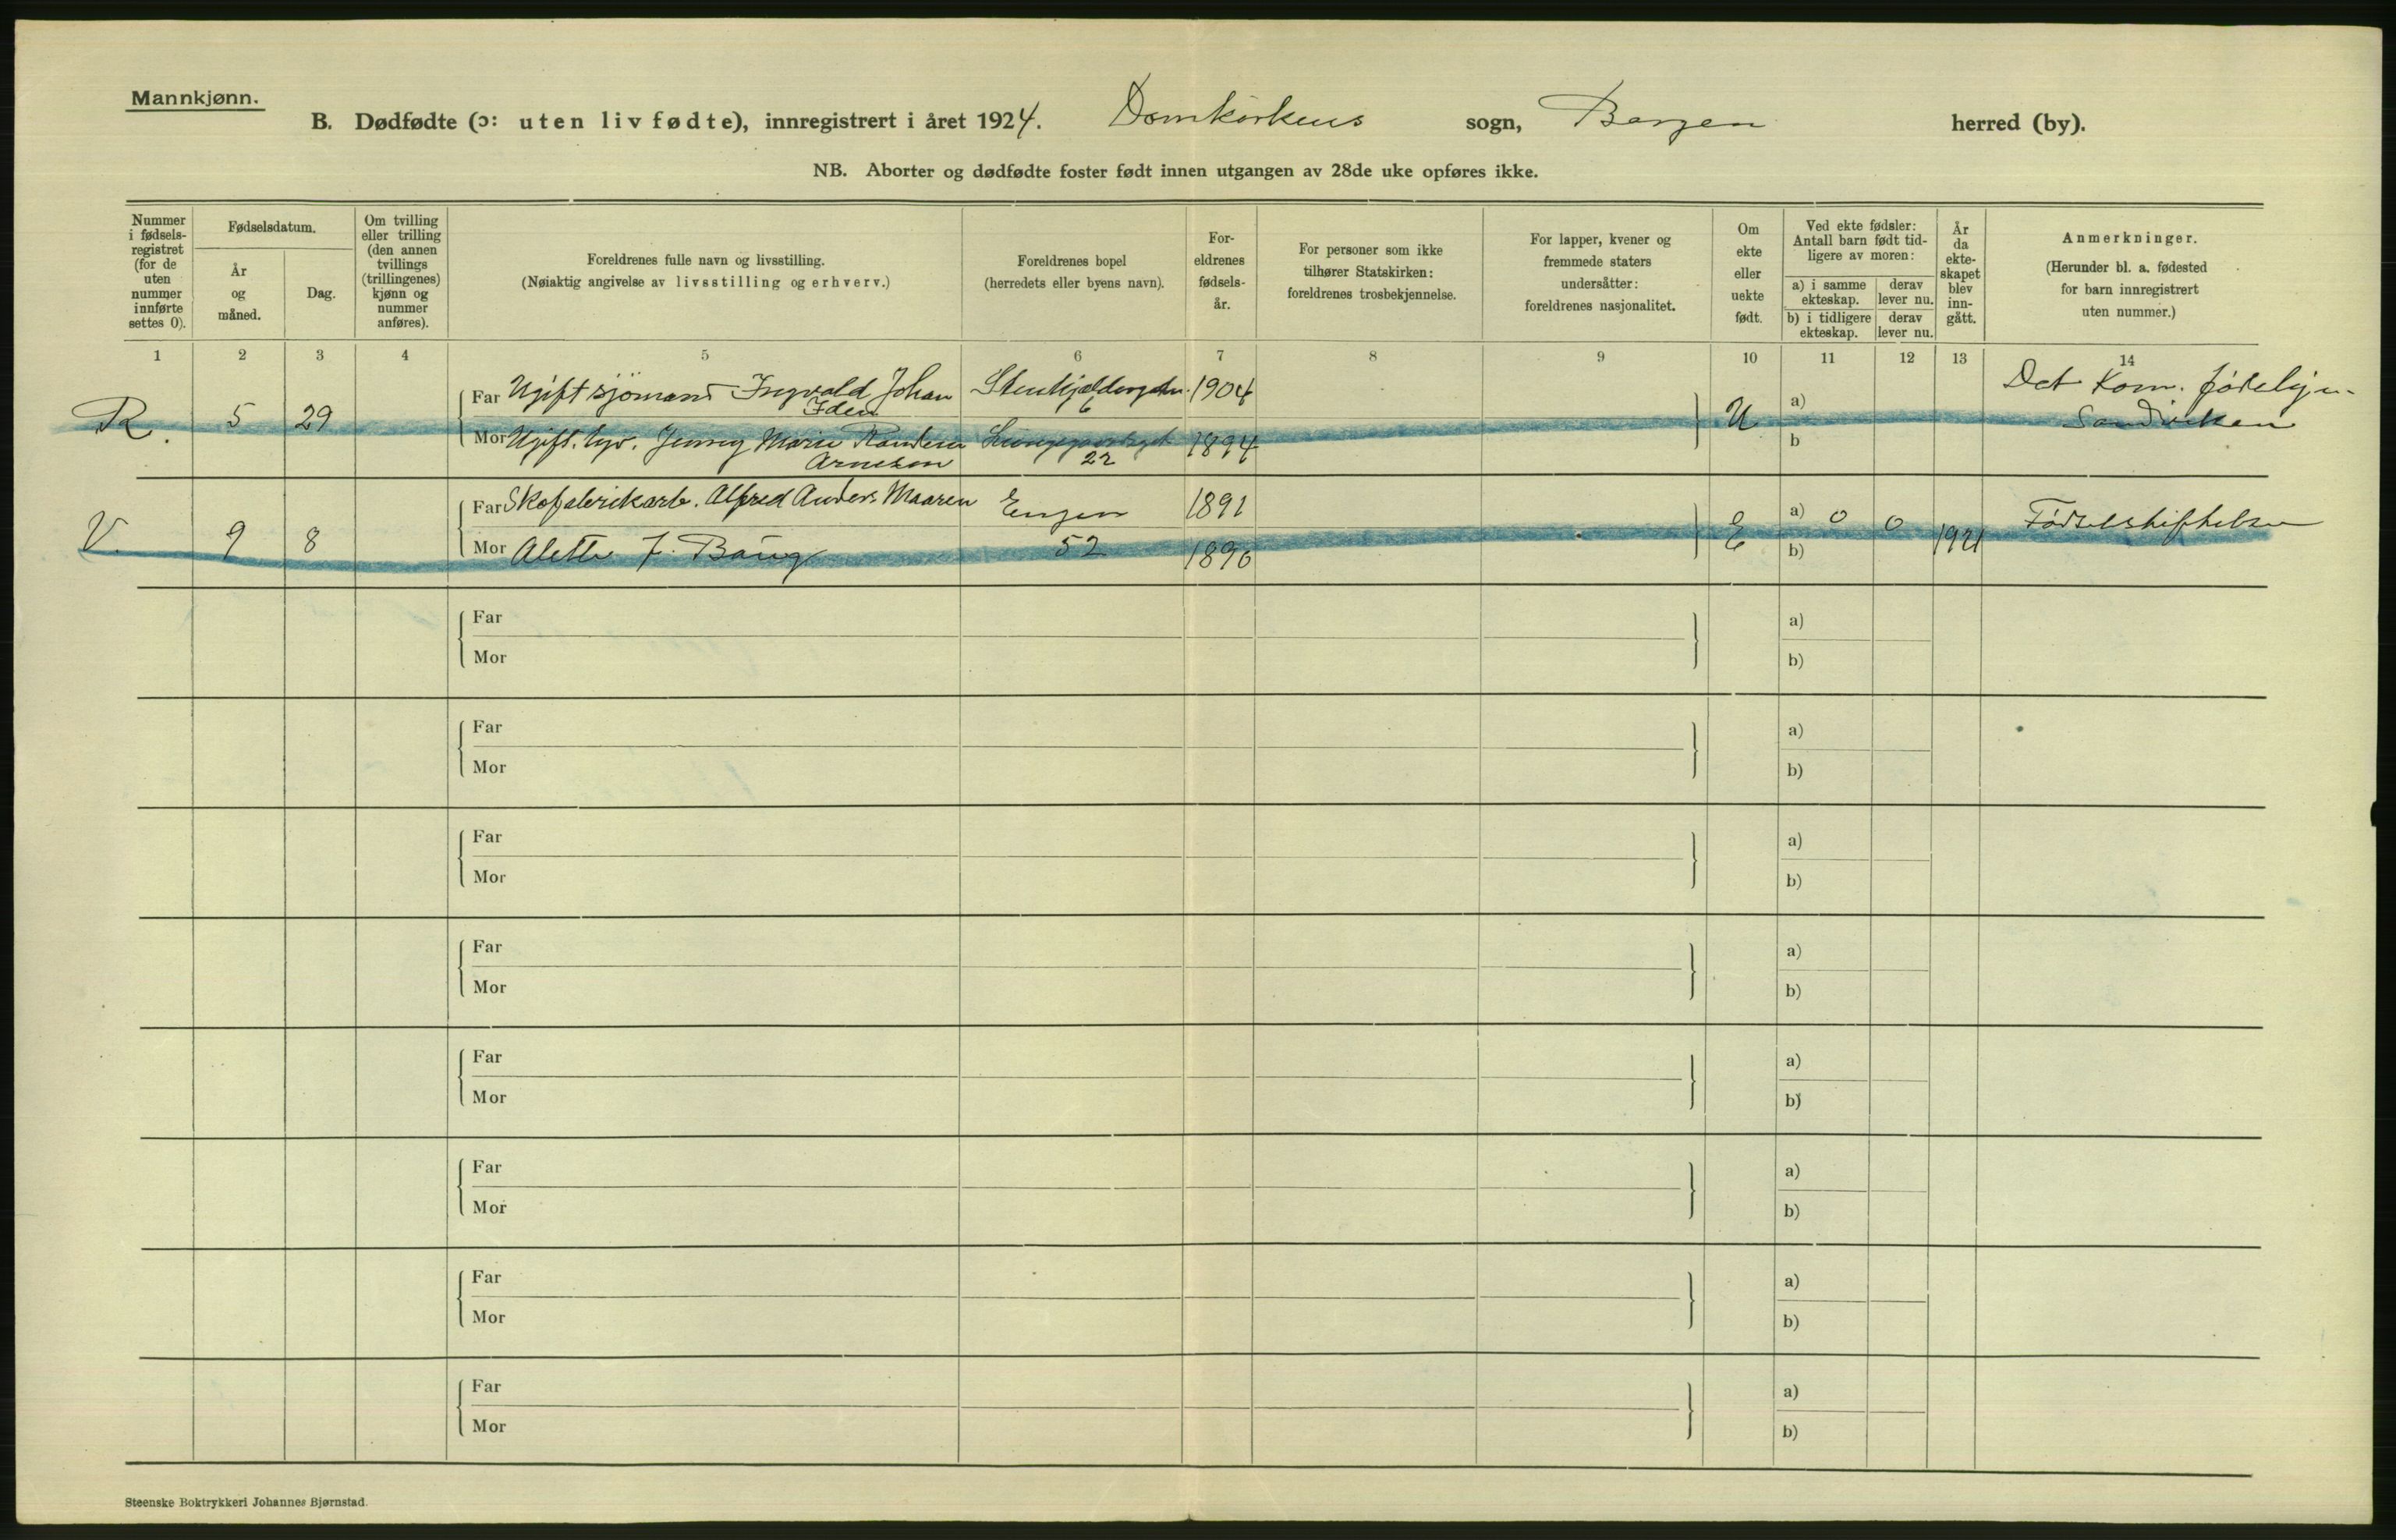 Mannkjønn.
B. Dødfødte (ɔ: uten liv fødte), innregistrert i året 1924. Domkirkens sogn, Bergen herred (by).
NB. Aborter og dødfødte foster født innen utgangen av 28de uke opføres ikke.
Nummer i fødsels-registret (for de uten nummer innførte settes 0).
Fødselsdatum.
År og måned.
Dag.
Om tvilling eller trilling (den annen tvillings (trillingenes) kjønn og nummer anføres).
Foreldrenes fulle navn og livsstilling.
(Nøiaktig angivelse av livsstilling og erhverv.)
Foreldrenes bopel
(herredets eller byens navn).
For-eldrenes fødsels-år.
For personer som ikke tilhører Statskirken: foreldrenes trosbekjennelse.
For lapper, kvener og fremmede staters undersåtter: foreldrenes nasjonalitet.
Om ekte eller uekte født.
Ved ekte fødsler: Antall barn født tid-ligere av moren:
a) i samme ekteskap.
derav lever nu.
b) i tidligere ekteskap.
derav lever nu.
År da ekte-skapet blev inn-gått.
Anmerkninger.
(Herunder bl. a. fødested for barn innregistrert uten nummer.)
1 2 3 4 5 6 7 8 9 10 11 12 13 14
R. 5 29
Far Ugift sjømand Ingvald Johan Iden
6 1904
Mor Ugift. Jenny Marie Arnesen
22 1894
U a)
b
Det Kom. fødehjem Sandviken
V. 9 8
Far Skofabrikarb. Alfred Anders Maaren
Engen 1891
Mor Alette J. Baug
52 1896
E a) 0 0 1921
b)
Fødselsstiftelsen
Far a)
Mor b)
Far a)
Mor b)
Far a)
Mor b)
Far a)
Mor b)
Far a)
Mor b)
Far a)
Mor b)
Far a)
Mor b)
Far a)
Mor b)
Steenske Boktrykkeri Johannes Bjørnstad.